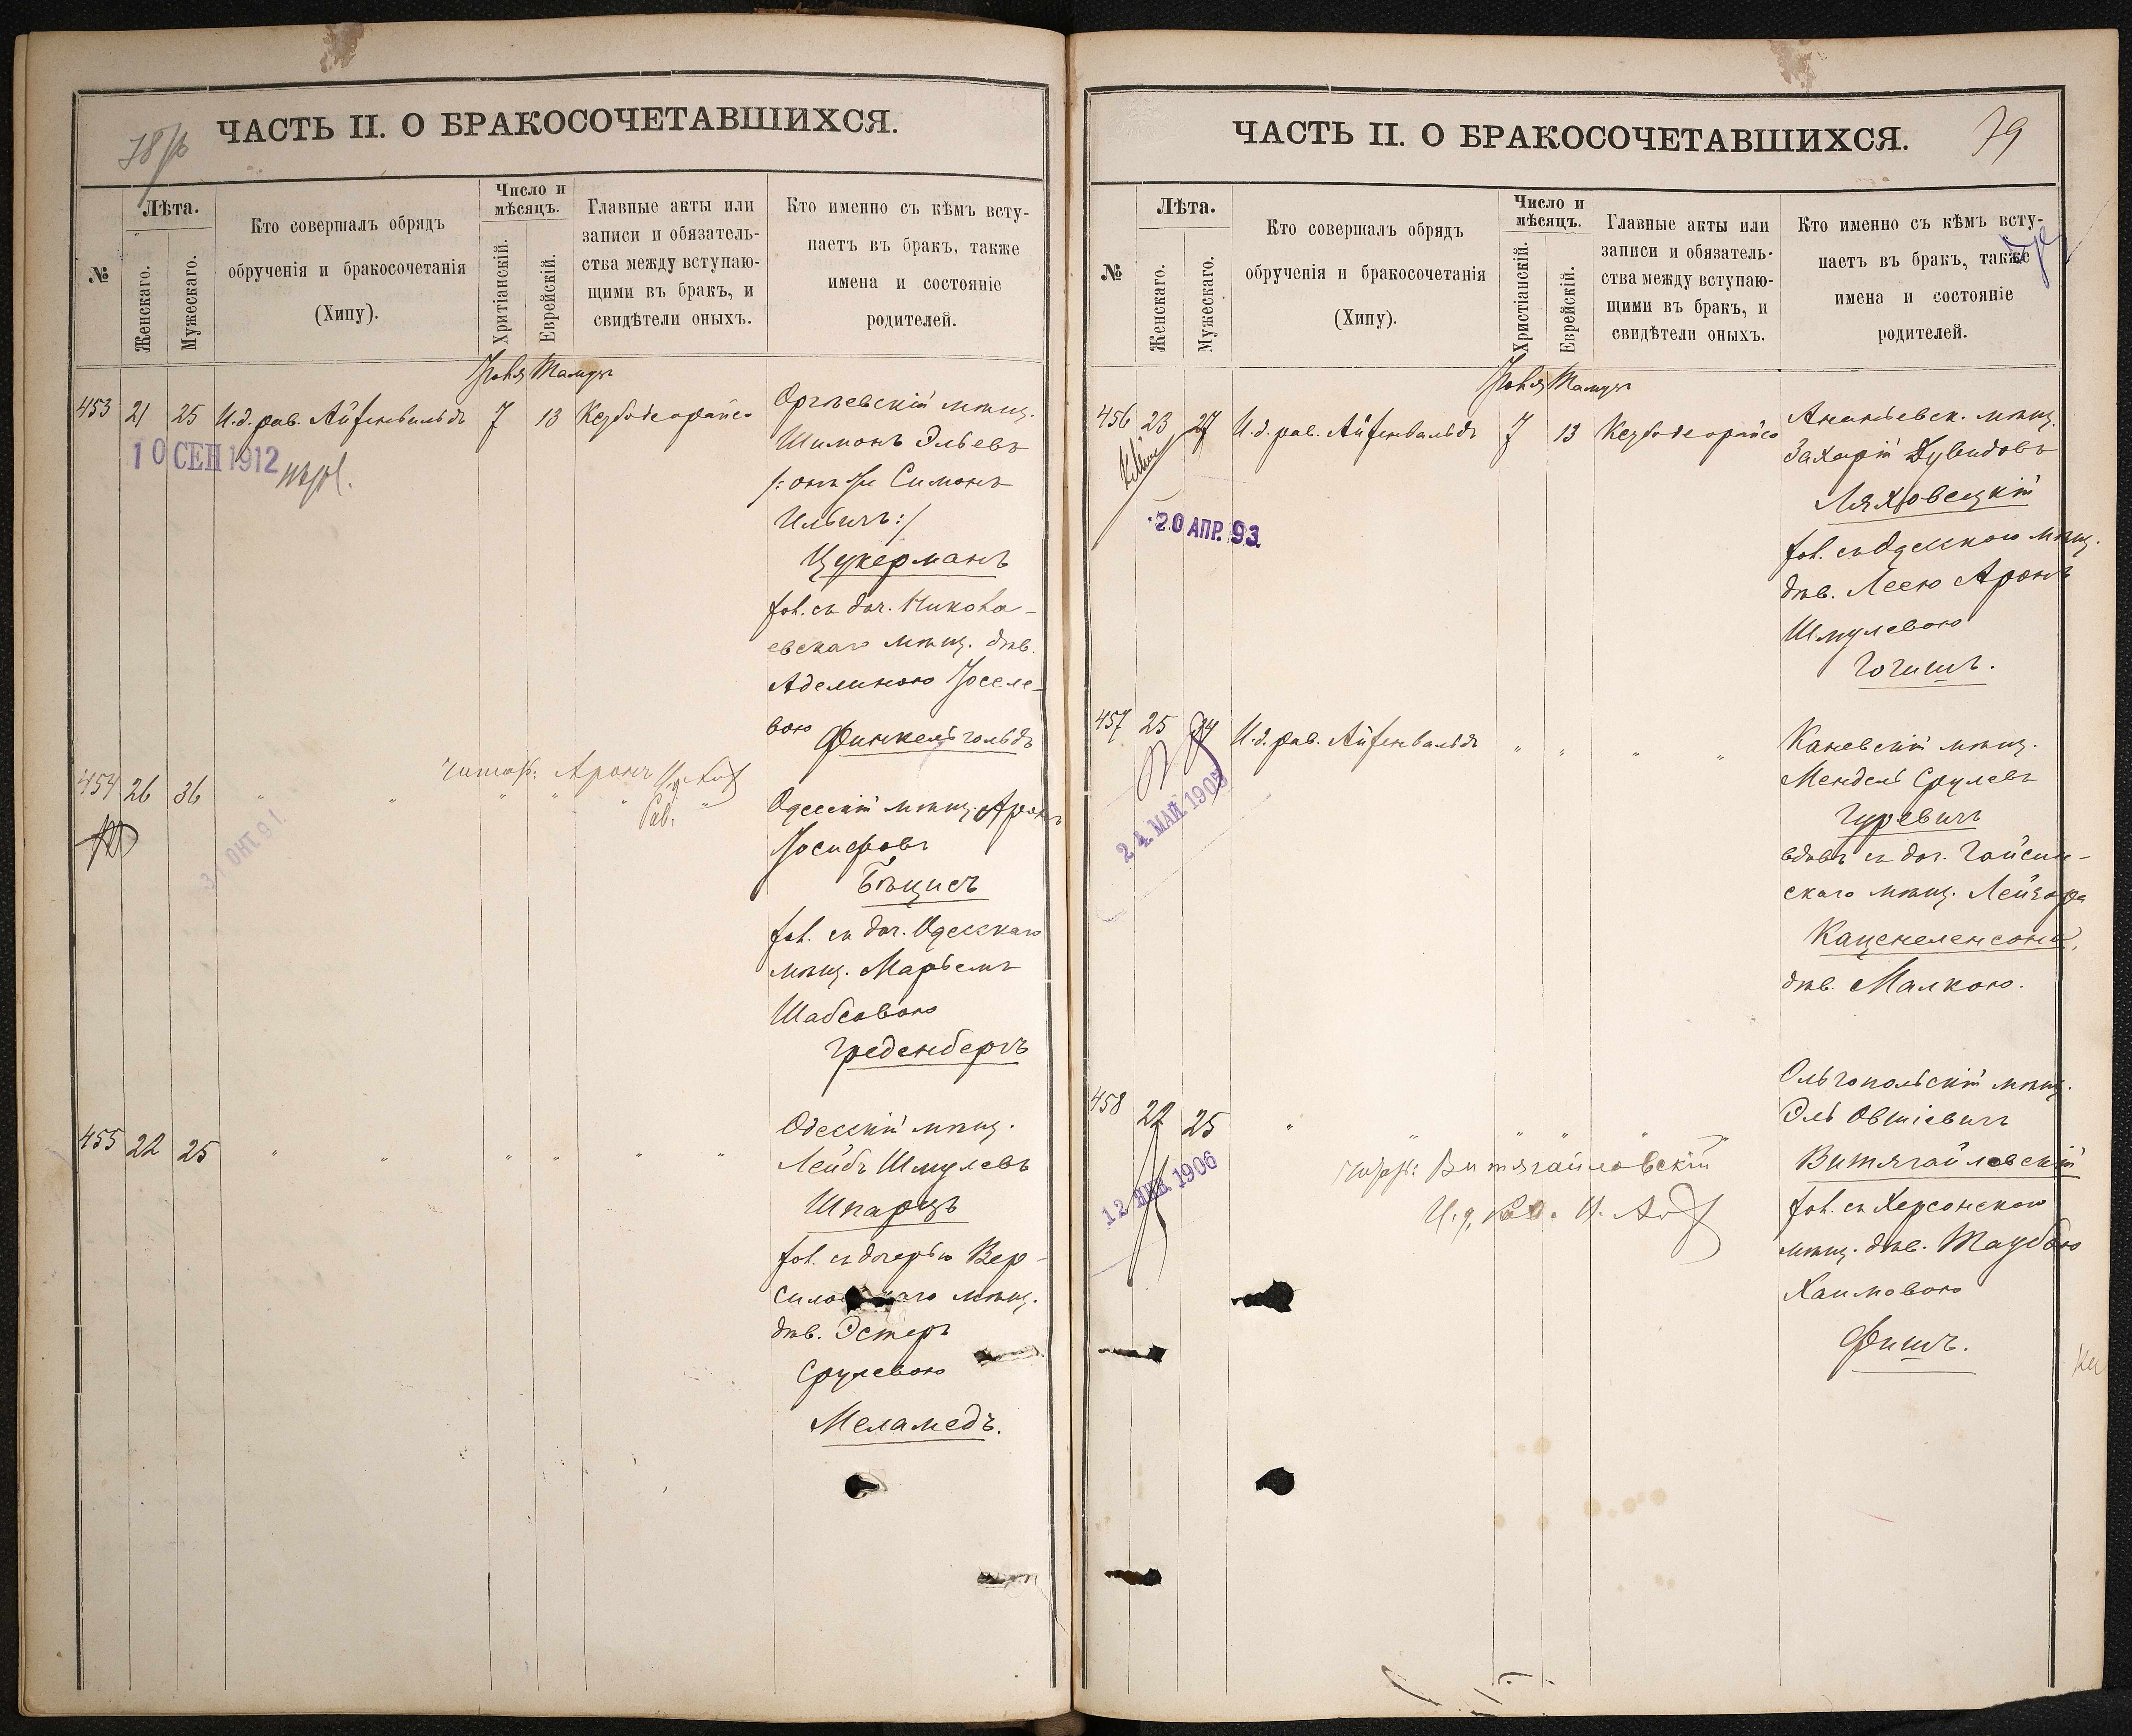 78 об
ЧАСТЬ II. О БРАКОСОЧЕТАВШИХСЯ.
№
Лѣта.
Женскаго.
Мужескаго.
Кто совершалъ обрядъ
обрученія и бракосочетанія
(Хипу).
Число и
мѣсяцъ.
Хритіанскій.
Еврейскій.
Главные акты или
записи и обязатель-
ства между вступаю-
щими въ бракъ, и
свидѣтели оныхъ.
Кто именно съ кѣмъ всту-
паетъ въ бракъ, также
имена и состояніе
родителей.
Іюля Тамуз
453 21 25 И.д. рав. Айзенвальдъ 7 13 Кезубадеорайсо
10 СЕН 1912
Оргѣевскій мѣщ.
Шимонъ Эльевъ
/: онъ же Симонъ
Ильичъ :/
Цукерманъ
хол. съ доч. Никола-
евскаго мѣщ. дѣв.
Аделиною Іоселе-
вою Финкельгольдъ
454 26 36 " " " " " "
читай: Аронъ И.д.
Рав.
31 ОКТ. 91.
Одесскій мѣщ. Аронъ
Іосифовъ
Бѣцисъ
хол. съ доч. Одесскаго
мѣщ. Марьемъ
Шабсовою
Греденбергъ
455 22 25 " " " " " "
Одесскій мѣщ.
Лейбъ Шмулевъ
Шпарцъ
хол. съ дочерью Вер-
мѣщ.
дѣв. Эстеръ
Срулевою
Меламедъ.
79
ЧАСТЬ II. О БРАКОСОЧЕТАВШИХСЯ.
№
Лѣта.
Женскаго.
Мужескаго.
Кто совершалъ обрядъ
обрученія и бракосочетанія
(Хипу).
Число и
мѣсяцъ.
Христіанскій.
Еврейскій.
Главные акты или
записи и обязатель-
ства между вступаю-
щими въ бракъ, и
свидѣтели оныхъ.
Кто именно съ кѣмъ всту-
паетъ въ бракъ, также
имена и состояніе
родителей.
Іюля Тамуз
456 23 27 И.д. рав. Айзенвальдъ 7 13 Кезубадеорайсо
20 АПР. 93.
Ананьевск. мѣщ.
Захарій Дувидовъ
Ляховецкій
хол. съ Одесскою мѣщ.
дѣв. Леею Аронъ
Шмулевою
Гогишъ.
457 25 34 И.д. рав. Айзенвальдъ " " " "
24 МАЙ 1905
Каневскій мѣщ.
Мендель Срулевъ
Гуревичъ
вдовъ съ доч. Гайсин-
скаго мѣщ. Лейзора
Каценеленсона,
дѣв. Малкою.
458 22 25 " " " " " "
12 ЯНВ. 1906
Витягайловскій
И.д. рав.
Ольгопольскій мѣщ.
Эль Овшіевичъ
Витягайловскій
хол. съ Херсонскою
мѣщ. дѣв. Таубою
Хаимовою
Фишъ.